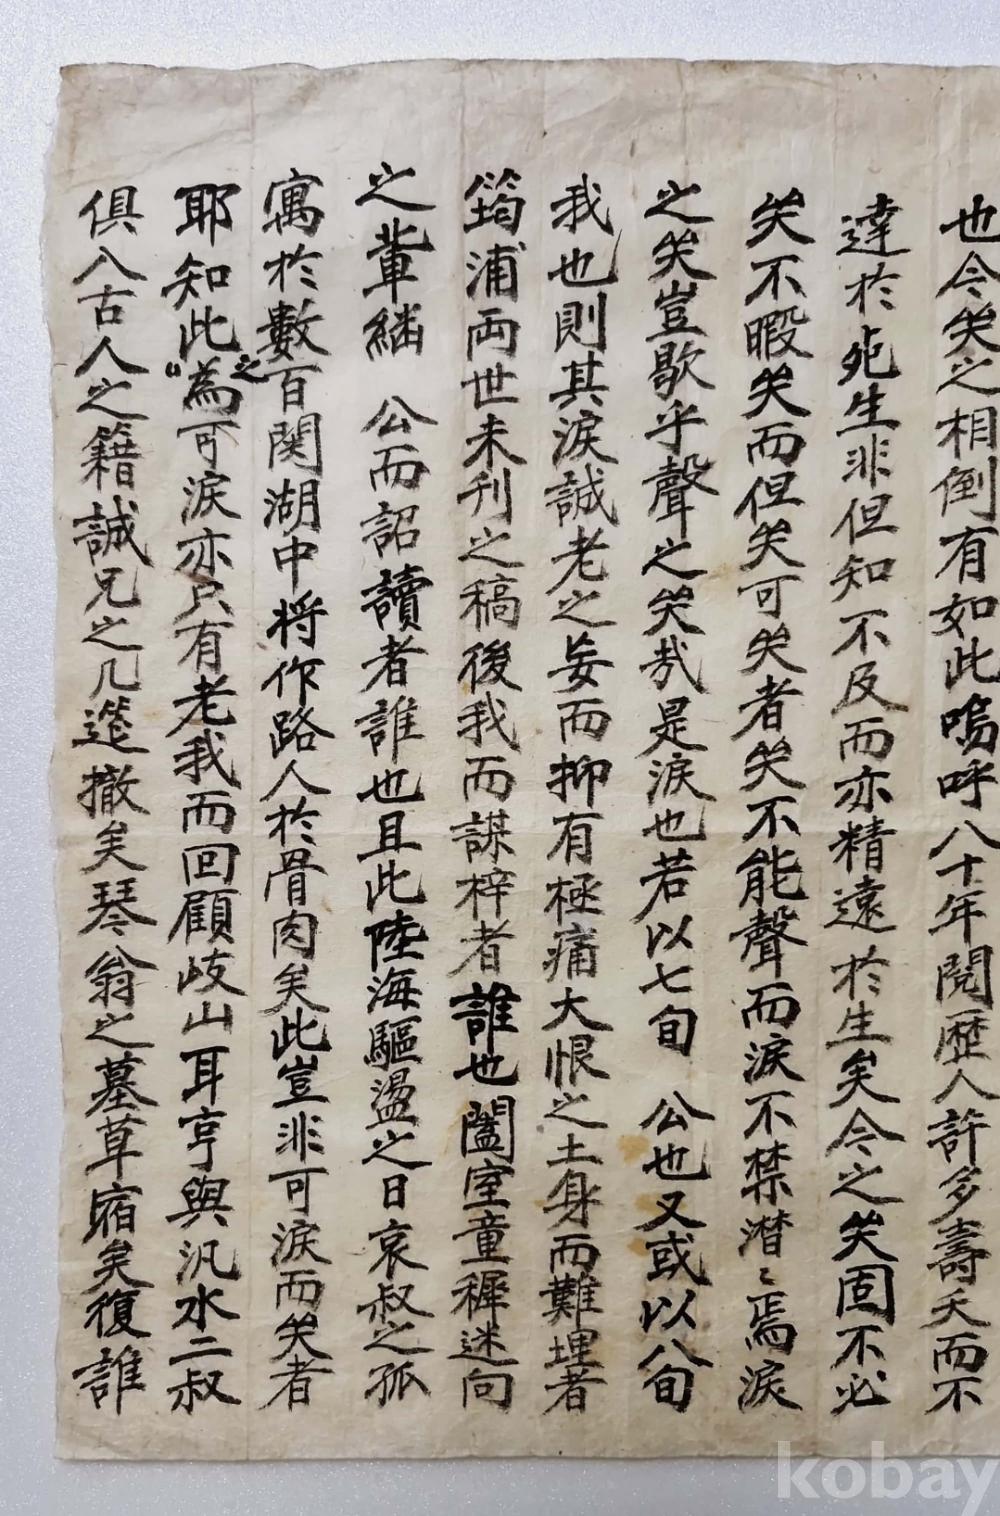 也今哭之相倒有如此嗚呼八十年閱歷人許多壽夭而不
達於死生非但知不及而亦精遠於生矣今之哭固不必
哭不暇哭而但哭可哭者哭不能聲而淚不禁潸〻焉淚
之哭豈歇乎聲之哭哉是淚也若以七旬 公也又或以八旬
我也則其淚誠老之妄而抑有極痛大恨之土身而難埋者
筠浦両世未刊之稿後我而謀梓者誰也闔室童穉迷向
之輩繙 公而詔讀者誰也且此陸海驅盪之日哀叔之孤
寓於數百関湖中将作路人於骨肉矣此豈非可淚而哭者
耶知此之爲可淚亦只有老我而回顧岐山耳亨與汎水二叔
俱入古人之籍誠兄之几筵撤矣琴翁之墓草宿矣復誰
kobay